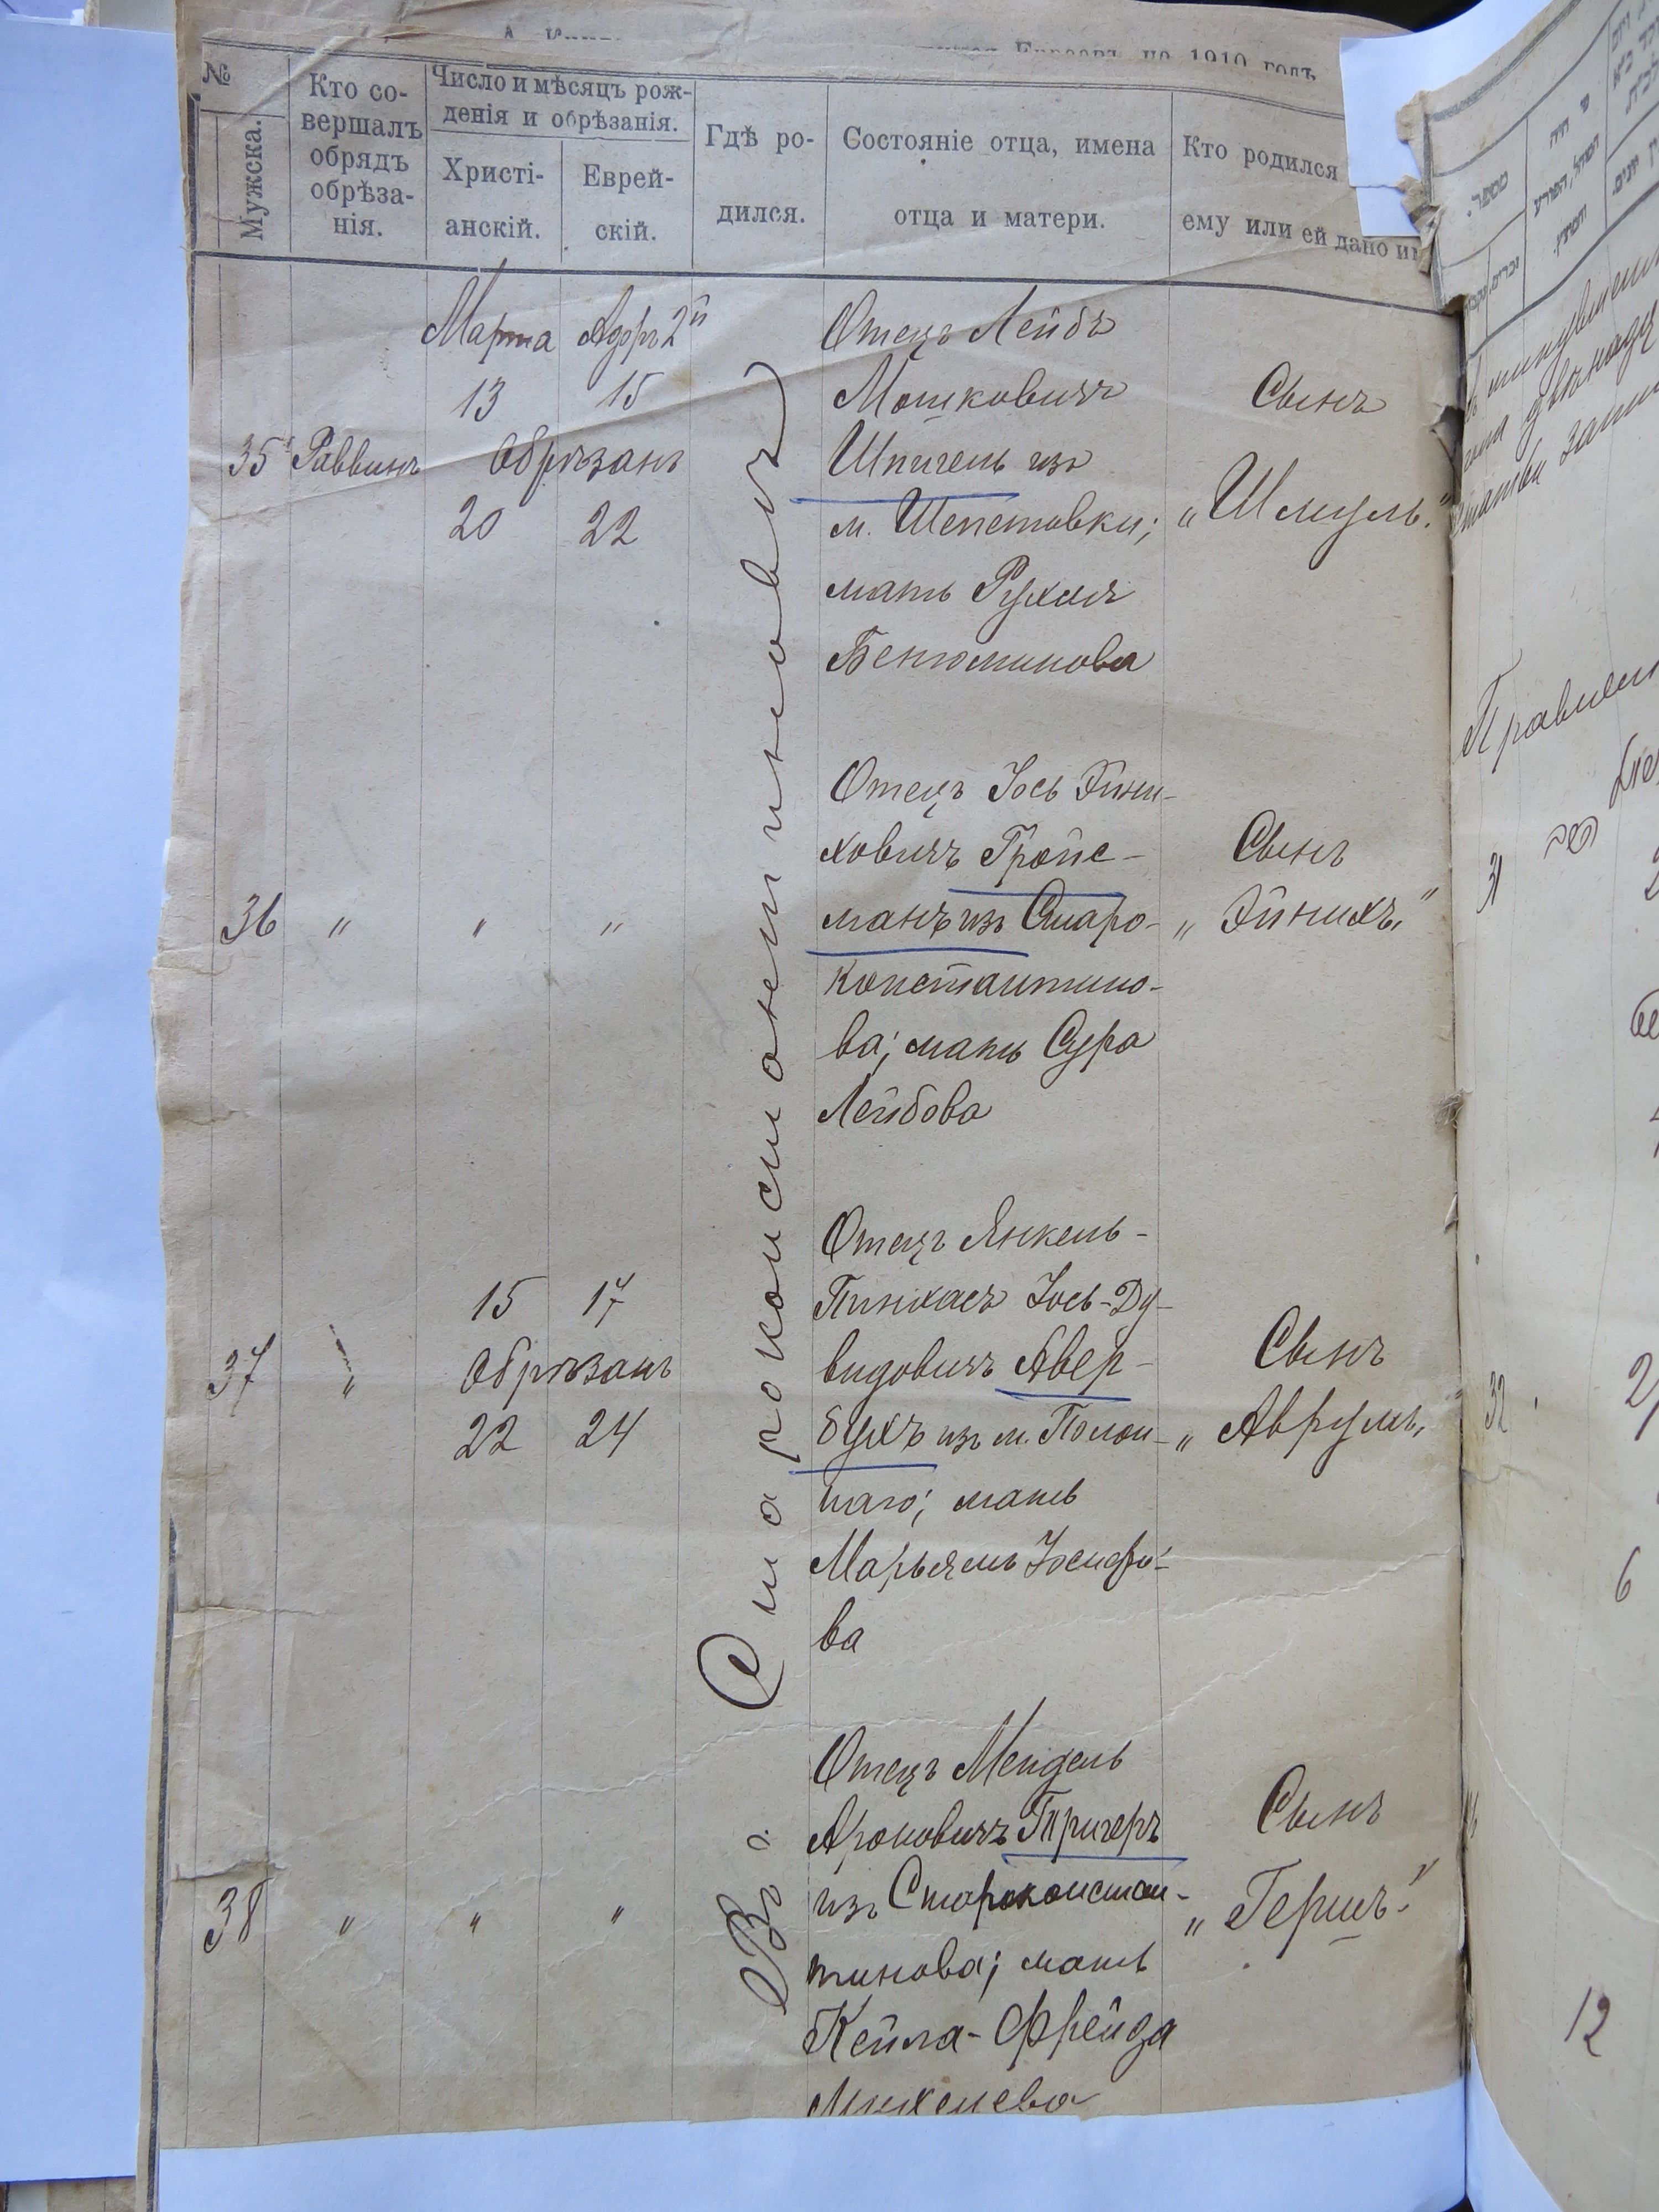 Евреевъ на 1910 годъ
№
Мужска.
Кто со-
вершалъ
обрядъ
обрѣза-
нія.
Число и мѣсяцъ рож-
денія и обрѣзанія.
Христі-
анскій.
Еврей-
скій.
Гдѣ ро-
дился.
Состояніе отца, имена
отца и матери.
Кто родился
ему или ей дано им
Въ г. Староконстантиновѣ
Марта Адаръ 2й
13 15
35 Раввинъ Обрѣзанъ
20 22
Отецъ Лейбъ
Мошковичъ
Шпигель изъ
м. Шепетовки;
мать Рухля
Бенюминова
Сынъ
„Шмуль."
36 " " "
Отецъ Іось Эйни-
ховичъ Гройс-
манъ изъ Старо-
константино-
ва; мать Сура
Лейбова
Сынъ
„Эйнихъ"
15 17
37 " Обрѣзанъ
22 24
Отецъ Янкель-
Пинхасъ Іось-Ду-
видовичъ Авер-
бухъ изъ м. Полон-
наго; мать
Марьямъ Іосифо-
ва
Сынъ
„Аврумъ"
38 " " "
Отецъ Мендель
Ароновичъ Тригеръ
изъ Староконстан-
тинова; мать
Кейла-Фрейда
Михелева
Сынъ
„Гершъ"
מספר.
31
32
6
12